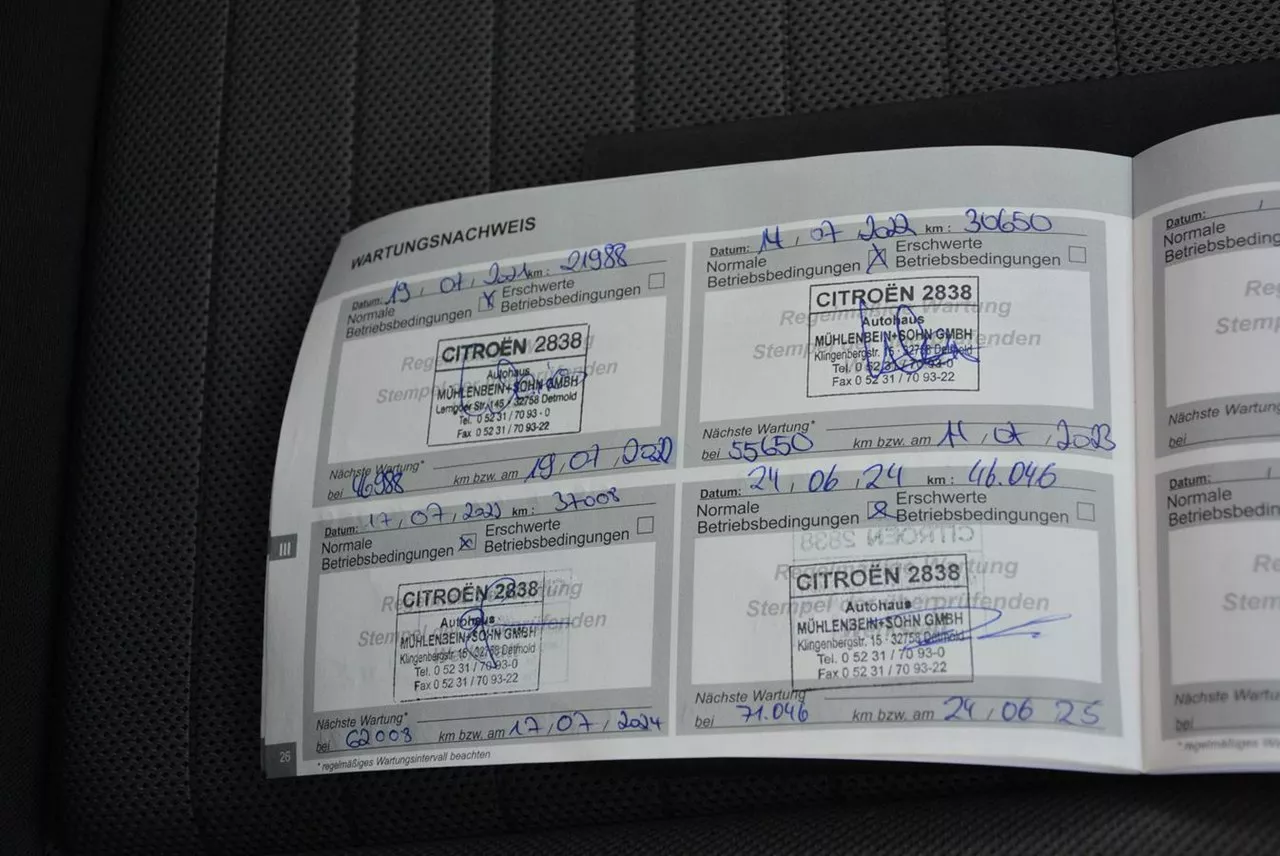 WARTUNGSNACHWEIS
Datum: 19, 07, 2021 km: 21988
Normale
Betriebsbedingungen X Erschwerte
Betriebsbedingungen
Regelmäßige Wartung
Stempel des überprüfenden
CITROËN 2838
Autohaus
MÜHLENBEIN+SOHN GMBH
Lemgoer Str. 145 • 32758 Detmold
Tel. 0 52 31 / 70 93 - 0
Fax 0 52 31 / 70 93-22
Nächste Wartung*
bei 46988 km bzw. am 19, 07, 2022
Datum: 11, 07 2022 km: 30650
Normale
Betriebsbedingungen X Erschwerte
Betriebsbedingungen
Regelmäßige Wartung
Stempel des überprüfenden
CITROËN 2838
Autohaus
MÜHLENBEIN+SOHN GMBH
Klingenbergstr. 15 · 32758 Detmold
Tel. 0 52 31 / 70 93-0
Fax 0 52 31 / 70 93-22
Nächste Wartung*
bei 55650 km bzw. am 11, 07, 2023
III
Datum: 17, 07, 2023 km: 37008
Normale
Betriebsbedingungen X Erschwerte
Betriebsbedingungen
Regelmäßige Wartung
Stempel des überprüfenden
CITROËN 2838
Autohaus
MÜHLENBEIN+SOHN GMBH
Klingenbergstr. 15 · 32758 Detmold
Tel. 0 52 31 / 70 93-0
Fax 0 52 31 / 70 93-22
Nächste Wartung*
bei 62008 km bzw. am 17, 07, 2024
Datum: 24, 06, 24 km: 46.046
Normale
Betriebsbedingungen X Erschwerte
Betriebsbedingungen
Regelmäßige Wartung
Stempel des überprüfenden
CITROËN 2838
Autohaus
MÜHLENBEIN+SOHN GMBH
Klingenbergstr. 15 · 32758 Detmold
Tel. 0 52 31 / 70 93-0
Fax 0 52 31 / 70 93-22
Nächste Wartung
bei 71.046 km bzw. am 24, 06 25
26
* regelmäßiges Wartungsintervall beachten
Datum:
Normale
Betriebsbeding
Nächste Wartung
bei
Datum:
Normale
Betriebsbeding
Nächste Wartung
bei
* regelmäßiges Wartungs